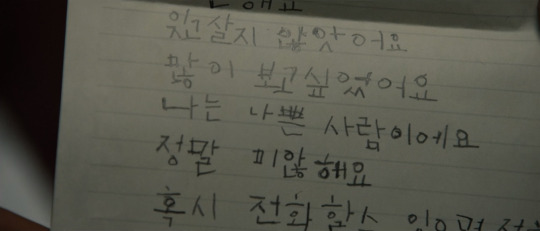 해요
잊고 살지 않앗어요
많이 보고싶었어요
나는 나쁜 사람이에요
정말 미않해요
혹시 전화할수 있으면